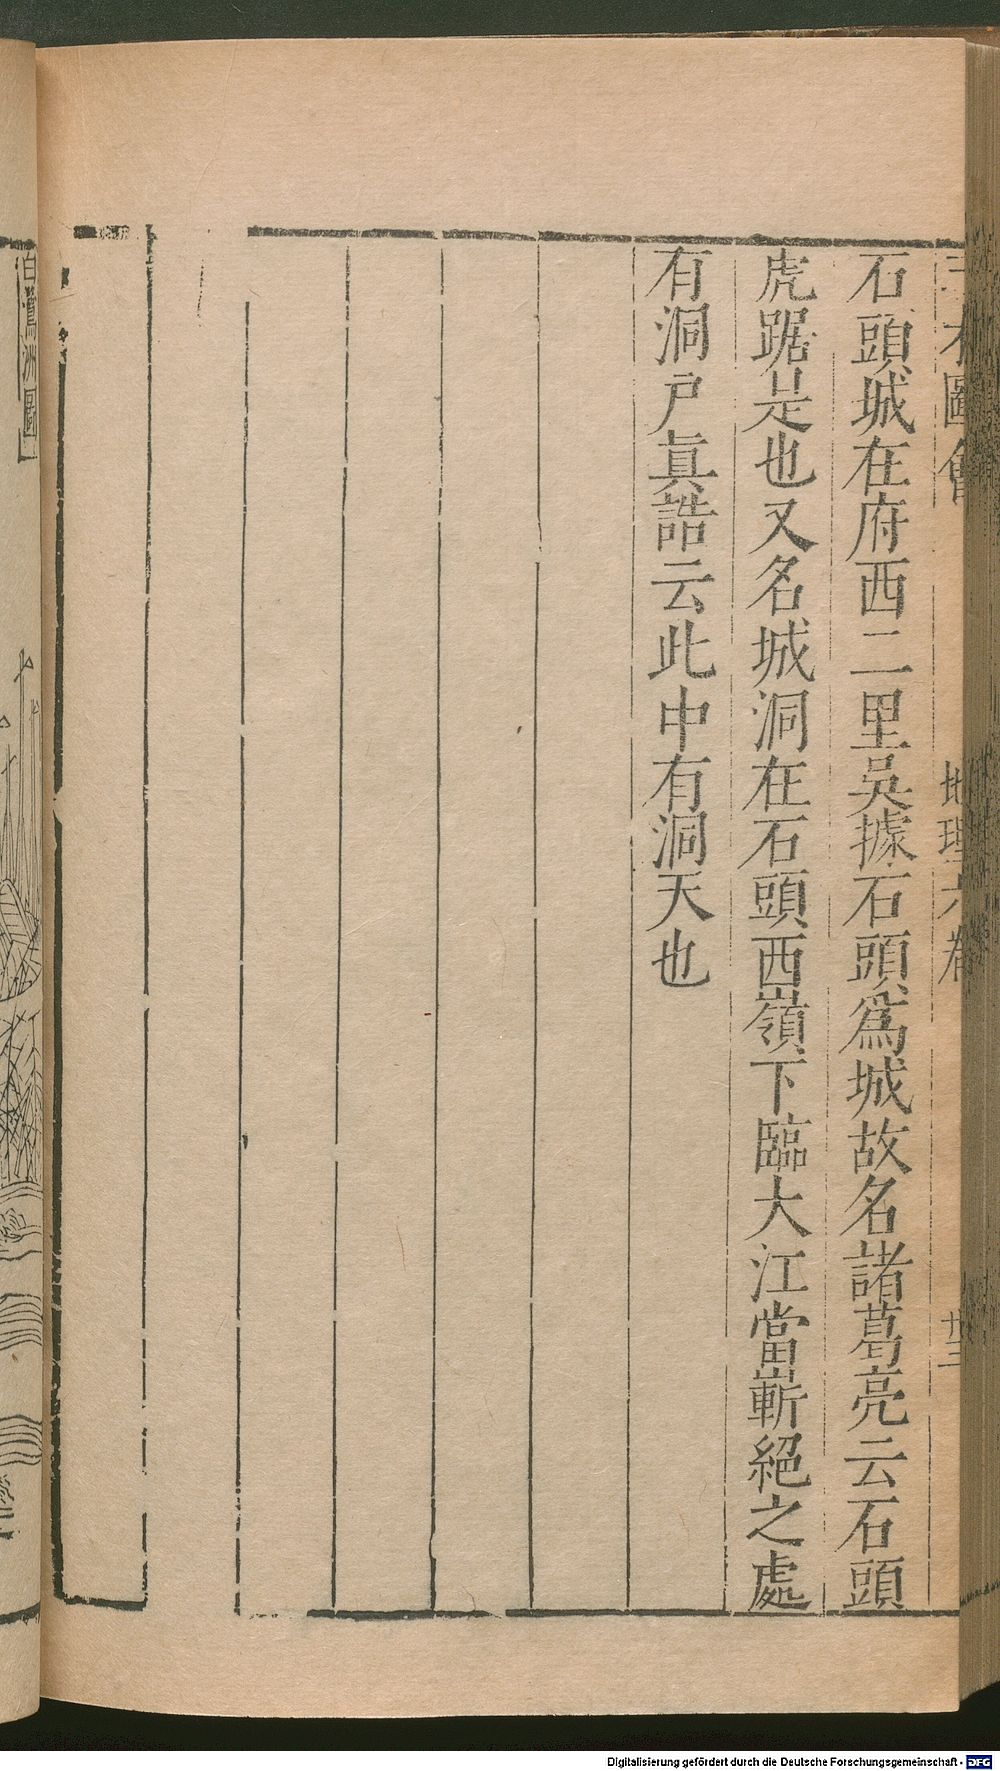 三才圖會 地理六卷 廿三
石頭城在府西二里吳據石頭爲城故名諸葛亮云石頭
虎踞是也又名城洞在石頭西嶺下臨大江當嶄絕之處
有洞戶眞誥云此中有洞天也
白鷺洲圖
Digitalisierung gefördert durch die Deutsche Forschungsgemeinschaft - DFG